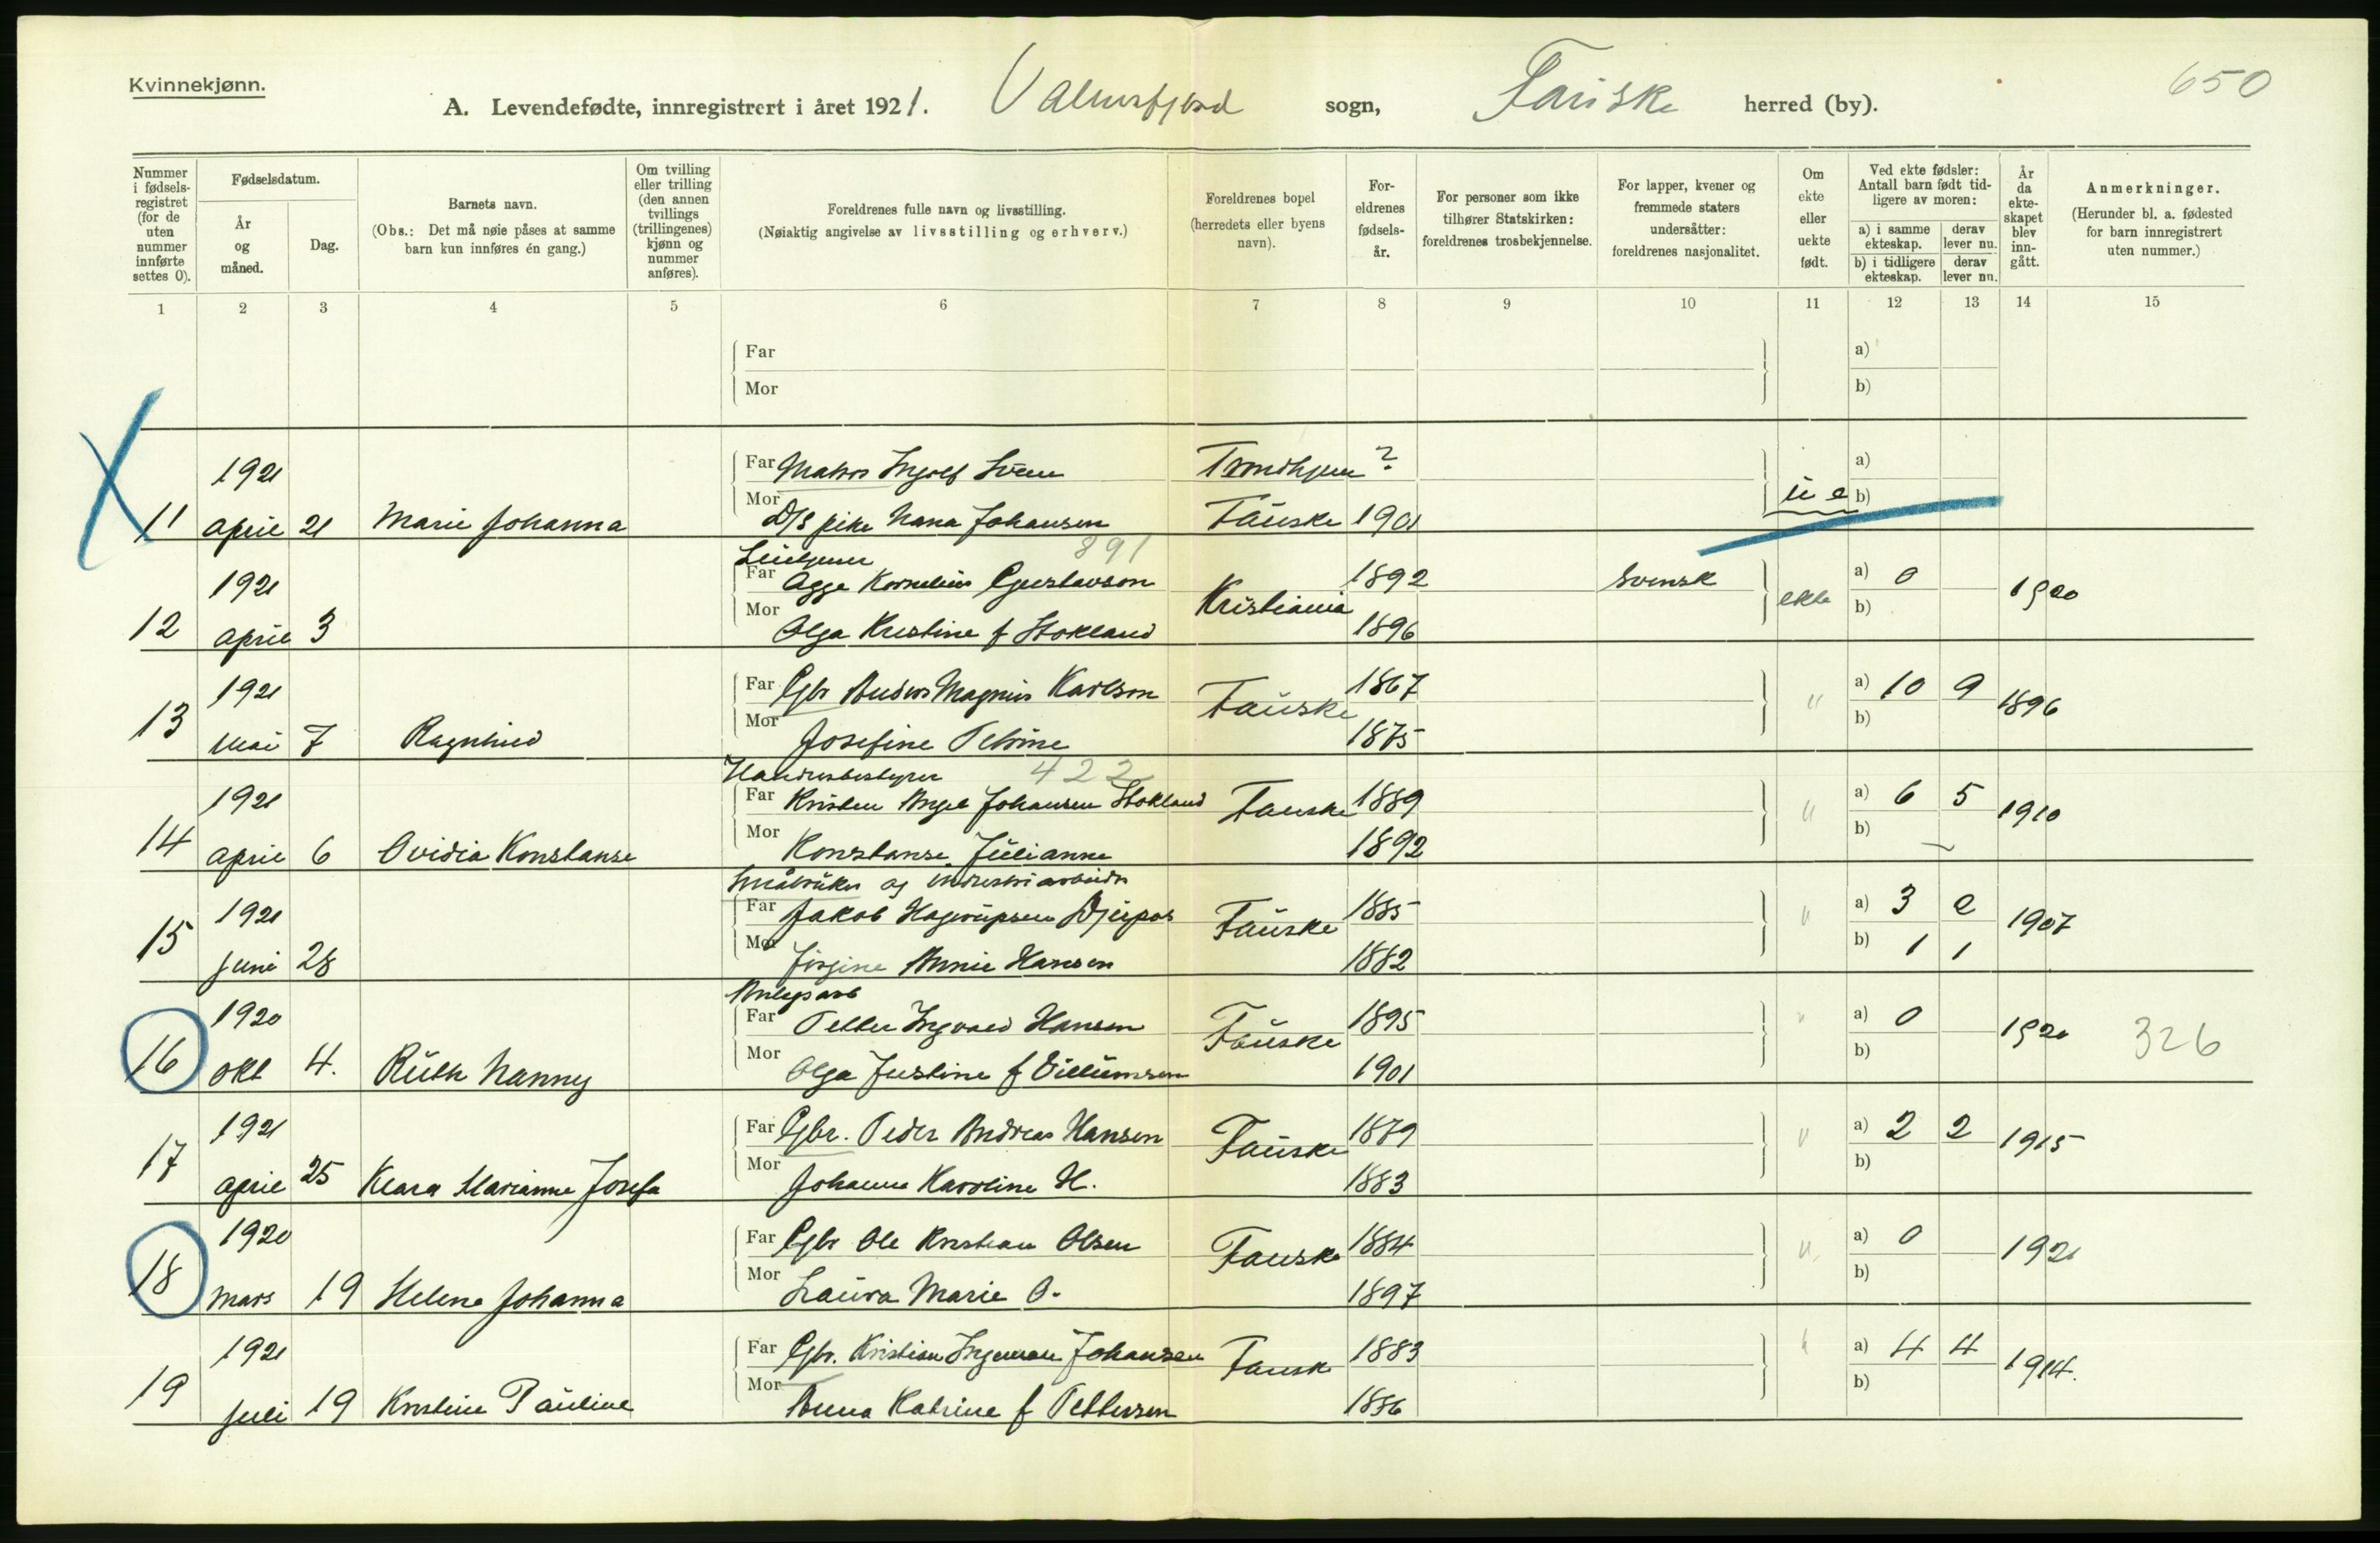 Kvinnekjønn.
650
A. Levendefødte, innregistrert i året 1921. Valnesfjord sogn, Fauske herred (by).
Nummer i fødsels- registret (for de uten nummer innførte settes 0).
Fødselsdatum.
År og måned.
Dag.
Barnets navn.
(Obs.: Det må nøie påses at samme barn kun innføres én gang.)
Om tvilling eller trilling (den annen tvillings (trillingenes) kjønn og nummer anføres).
Foreldrenes fulle navn og livsstilling.
(Nøiaktig angivelse av livsstilling og erhverv.)
Foreldrenes bopel (herredets eller byens navn).
For- eldrenes fødsels- år.
For personer som ikke tilhører Statskirken: foreldrenes trosbekjennelse.
For lapper, kvener og fremmede staters undersåtter: foreldrenes nasjonalitet.
Om ekte eller uekte født.
Ved ekte fødsler: Antall barn født tid- ligere av moren:
a) i samme ekteskap.
derav lever nu.
b) i tidligere ekteskap.
derav lever nu.
År da ekte- skapet blev inn- gått.
Anmerkninger.
(Herunder bl. a. fødested for barn innregistrert uten nummer.)
1 2 3 4 5 6 7 8 9 10 11 12 13 14 15
Far a)
Mor b)
1921 Far Matros Ingolf Trondhjem ? a)
11 april 21 Marie Johanna Mor pike Nana Johansen Fauske 1901 u e b)
891
1921 Far Agge Kornelius Gustavson Kristiania 1892 svensk ekte a) 0 1920
12 april 3 Mor Olga Kristine f Stokland 1896 b)
1921 Far Gbr Anders Magnus Karlson Fauske 1867 " a) 10 9 1896
13 mai 7 Ragnhild Mor Josefine Petrine 1875 b)
Handelsbestyrer 422
1921 Far Kristen Angel Johansen Stokland Fauske 1889 " a) 6 5 1910
14 april 6 Ovidia Konstanse Mor Konstanse Julianne 1892 b)
Småbruker og industriarbeider
1921 Far Jakob Hagerupsen Djupos Fauske 1885 " a) 3 2 1907
15 juni 28 Mor Jørgine Annie Hansen 1882 b) 1 1
Anlegsarb
1920 Far Petter Ingvald Hansen Fauske 1895 " a) 0 1920 326
16 okt 4. Ruth Nanny Mor Olga Justine f Villumsen 1901 b)
1921 Far Gbr. Peder Andreas Hansen Fauske 1879 " a) 2 2 1915
17 april 25 Klara Marianne Josefa Mor Johanna Karoline H. 1883 b)
1920 Far Gbr Ole Kristian Olsen Fauske 1884 " a) 0 1921
18 mars 19 Helene Johanna Mor Laura Marie O. 1897 b)
1921 Far Gbr. Kristian Ingeman Johansen Fausk 1883 " a) 4 4 1914.
19 juli 19 Kristine Pauline Mor Anna Katrine f Pettersen 1886 b)